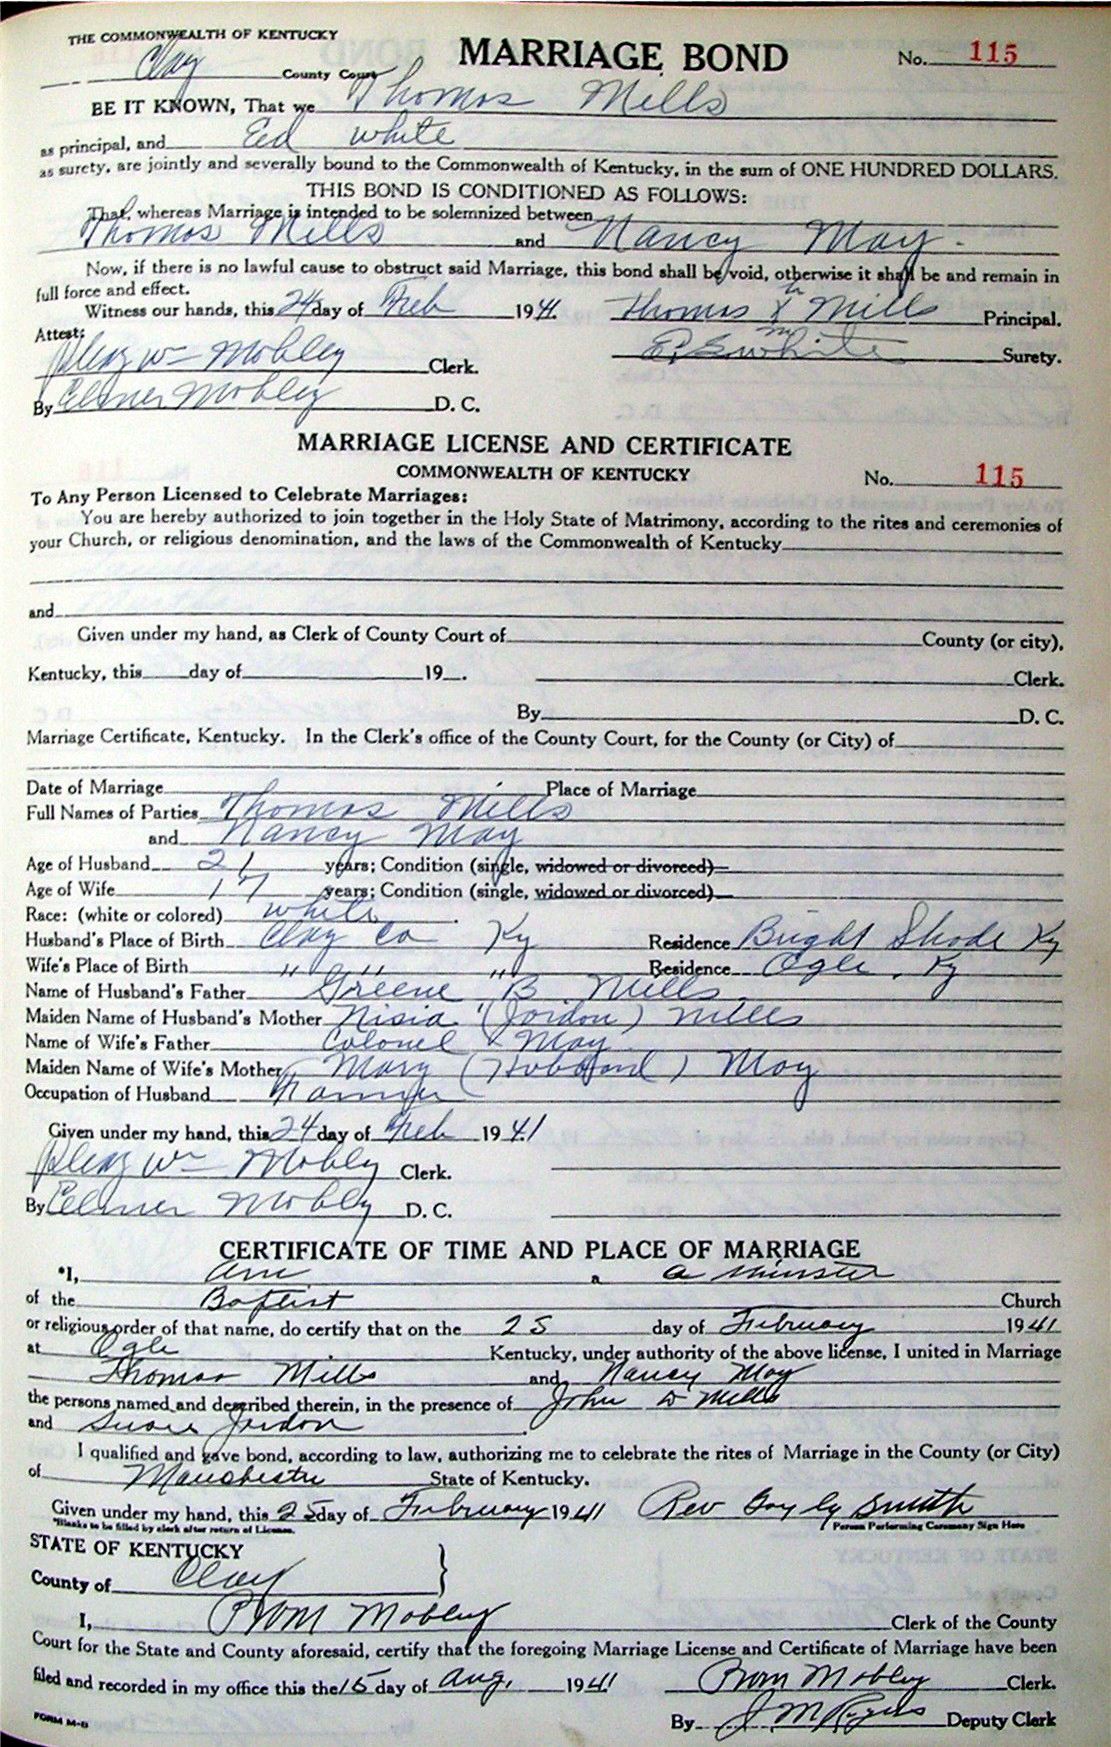 THE COMMONWEALTH OF KENTUCKY
MARRIAGE BOND No. 115
Clay County Court
BE IT KNOWN, That we Thomas Mills
as principal, and Ed White
as surety, are jointly and severally bound to the Commonwealth of Kentucky, in the sum of ONE HUNDRED DOLLARS.
THIS BOND IS CONDITIONED AS FOLLOWS:
That, whereas Marriage is intended to be solemnized between
Thomas Mills and Nancy May.
Now, if there is no lawful cause to obstruct said Marriage, this bond shall be void, otherwise it shall be and remain in
full force and effect.
Witness our hands, this 24 day of Feb 1941. Thomas X Mills Principal.
Attest:
Pleaz Wm Mobley Clerk. White Surety.
By Elmer Mobley D. C.
MARRIAGE LICENSE AND CERTIFICATE
COMMONWEALTH OF KENTUCKY No. 115
To Any Person Licensed to Celebrate Marriages:
You are hereby authorized to join together in the Holy State of Matrimony, according to the rites and ceremonies of
your Church, or religious denomination, and the laws of the Commonwealth of Kentucky
and
Given under my hand, as Clerk of County Court of County (or city),
Kentucky, this day of 19 . Clerk.
By D. C.
Marriage Certificate, Kentucky. In the Clerk's office of the County Court, for the County (or City) of
Date of Marriage Place of Marriage
Full Names of Parties Thomas Mills
and Nancy May
Age of Husband 21 years; Condition (single, widowed or divorced)
Age of Wife 17 years; Condition (single, widowed or divorced)
Race: (white or colored) white
Husband's Place of Birth Clay Co Ky Residence Bright Shade Ky
Wife's Place of Birth " " " Residence Ogle, Ky
Name of Husband's Father Greene B. Mills
Maiden Name of Husband's Mother Nisia (Jordon) Mills
Name of Wife's Father Colonel May
Maiden Name of Wife's Mother Mary (Hubbard) May
Occupation of Husband Farmer
Given under my hand, this 24 day of Feb 1941
Pleaz Wm Mobley Clerk.
By Elmer Mobley D. C.
CERTIFICATE OF TIME AND PLACE OF MARRIAGE
*I, am a a minster
of the Baptist Church
or religious order of that name, do certify that on the 25 day of February 1941
at Ogle Kentucky, under authority of the above license, I united in Marriage
Thomas Mills and Nancy May
the persons named and described therein, in the presence of John D Mills
and Susie Jordon
I qualified and gave bond, according to law, authorizing me to celebrate the rites of Marriage in the County (or City)
of Manchester State of Kentucky.
Given under my hand, this 25 day of February 1941 Rev Smith
*Blanks to be filled by clerk after return of License. Person Performing Ceremony Sign Here
STATE OF KENTUCKY
County of Clay }
I, PWM Mobley Clerk of the County
Court for the State and County aforesaid, certify that the foregoing Marriage License and Certificate of Marriage have been
filed and recorded in my office this the 15 day of Aug. 1941 PWM Mobley Clerk.
By J. M Rogers Deputy Clerk
FORM M-B